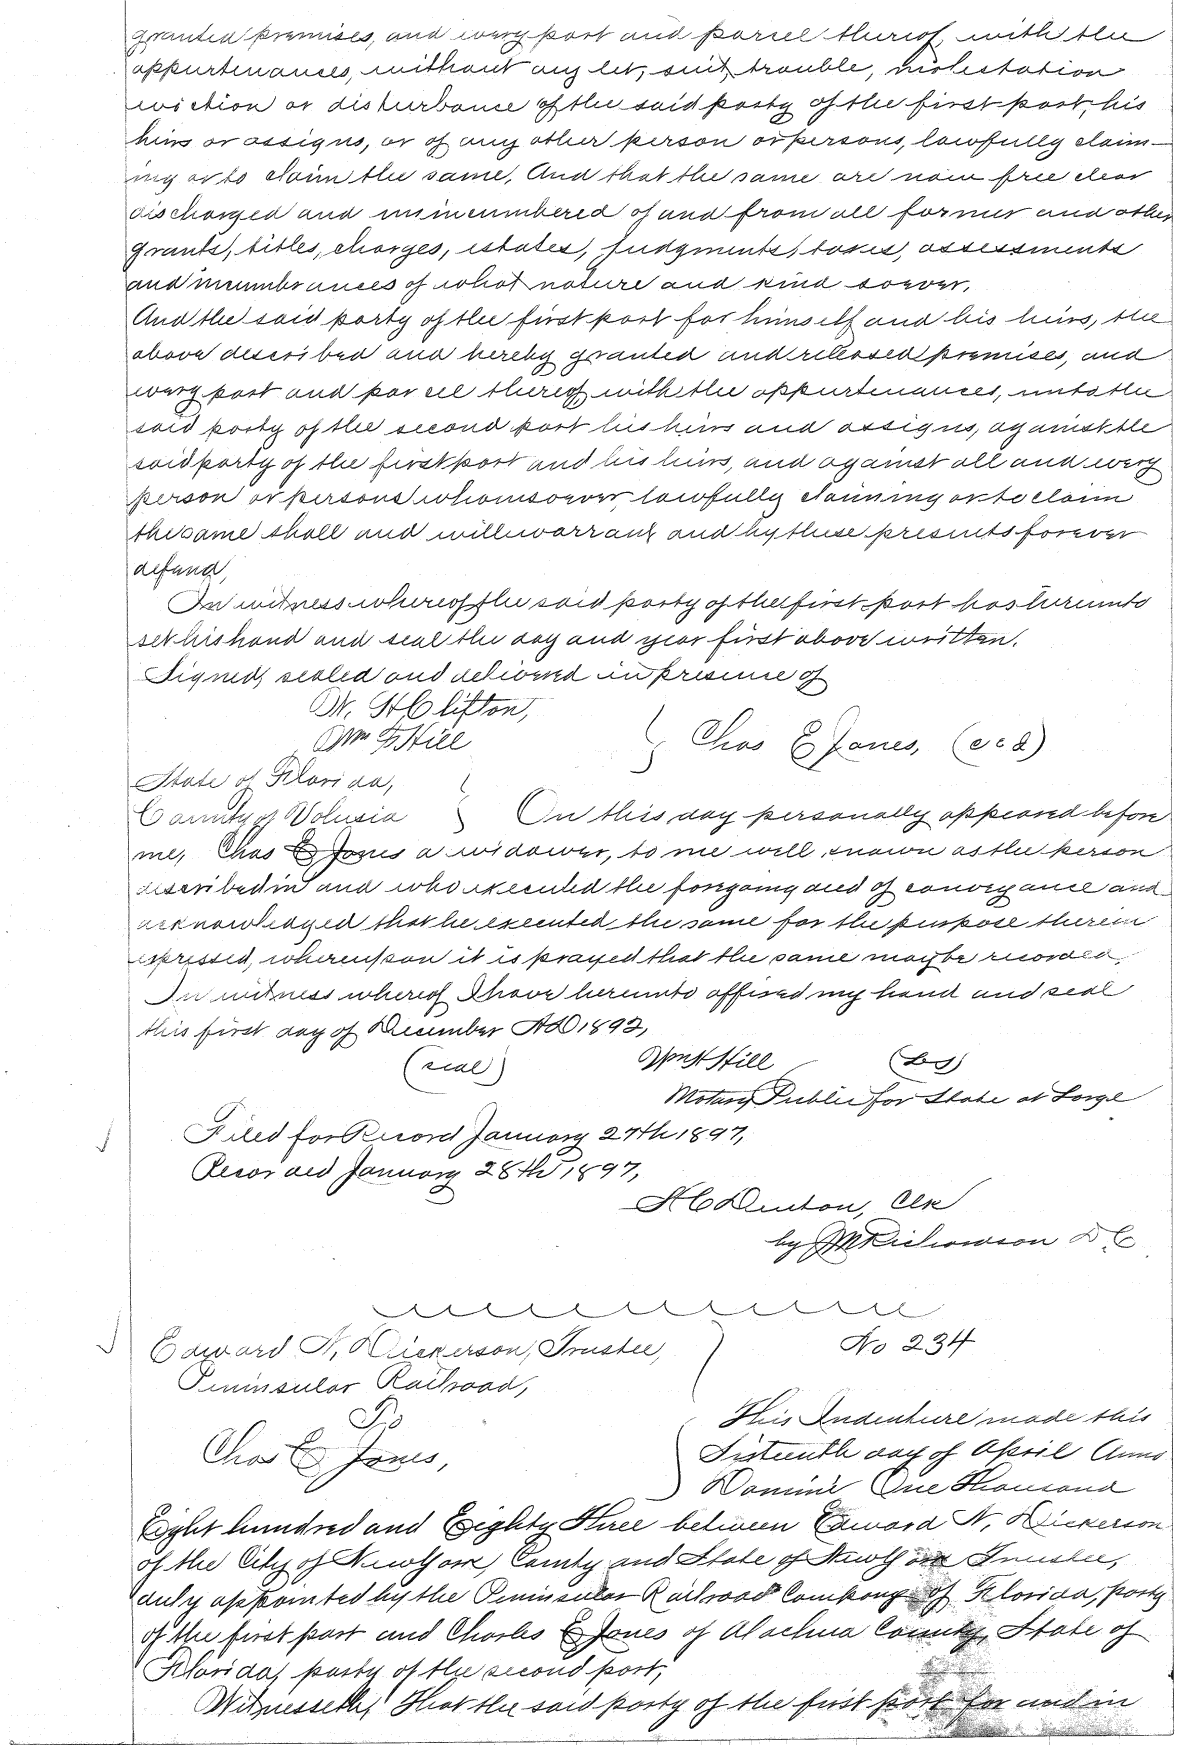 granted premises, and every part and parcel thereof, with the
appurtenances, without any let, suit, trouble, molestation
eviction or disturbance of the said party of the first part, his
heirs or assigns, or of any other person or persons, lawfully claim-
ing or to claim the same, And that the same are now free clear
discharged and unincumbered of and from all former and other
grants, titles, charges, estates, judgments, taxes, assessments
and incumbrances of what nature and kind soever,
And the said party of the first part for himself and his heirs, the
above described and hereby granted and released premises, and
every part and parcel thereof with the appurtenances, unto the
said party of the second part his heirs and assigns, against the
said party of the first part and his heirs, and against all and every
person or persons whomsoever, lawfully claiming or to claim
the same shall and will warrant and by these presents forever
defend,
In witness whereof the said party of the first part has hereunto
set his hand and seal the day and year first above written.
Signed, sealed and delivered in presence of
W. H Clifton,
Wm H Hill
Chas E Jones, (seal)
State of Florida,
County of Volusia } On this day personally appeared before
me, Chas E Jones a widower, to me well known as the person
described in and who executed the foregoing deed of conveyance and
acknowledged that he executed the same for the purpose therein
expressed, whereupon it is prayed that the same may be recorded,
In witness whereof I have hereunto affixed my hand and seal
this first day of December AD 1892,
(seal) Wm H Hill (LS)
Notary Public for State at Large
Filed for Record January 27th 1897,
Recorded January 28th 1897,
H C Denton, Clk
by J M Richarson D C
Edward N, Dickerson, Trustee, No 234
Peninsular Railroad,
To
Chas E Jones,
This Indenture made this
Sixteenth day of April Anno
Domini One Thousand
Eight hundred and Eighty Three between Edward N, Dickerson
of the City of New York, County and State of New York Trustee,
duly appointed by the Peninsular Railroad Company of Florida, party
of the first part and Charles E Jones of Alachua County, State of
Florida, party of the second part,
Witnesseth, That the said party of the first part for and in